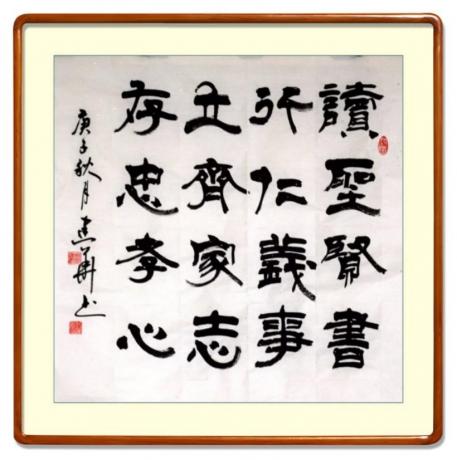 讀聖賢書
行仁義事
立齊家志
存忠孝心
庚子秋月建華书